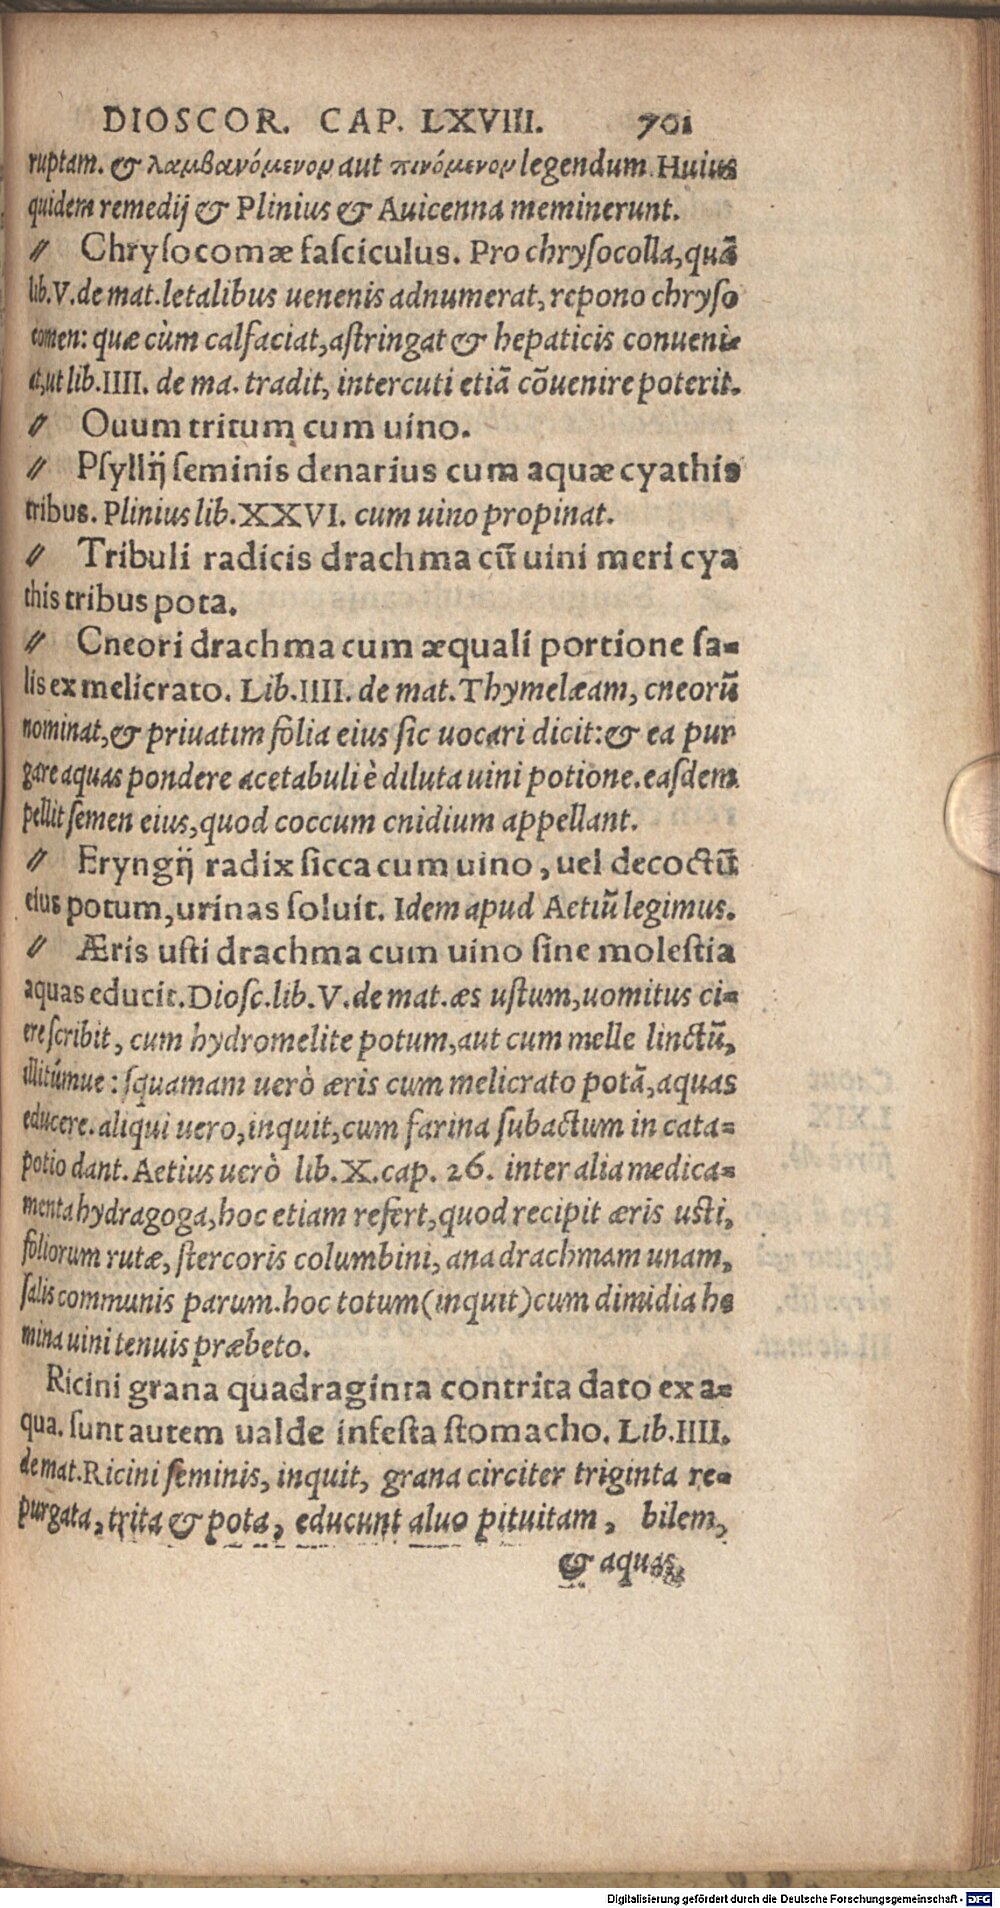 DIOSCOR. CAP. LXVIII. 701
ruptam. & λαμβανόμενον aut πινόμενον legendum. Huius
quidem remedij & Plinius & Auicenna meminerunt.
〃 Chrysocomæ fasciculus. Pro chrysocolla, quã
lib.V. de mat. letalibus uenenis adnumerat, repono chryso
comen: quæ cùm calfaciat, astringat & hepaticis conueni-
at, ut lib.IIII. de ma. tradit, intercuti etiã cõuenire poterit.
〃 Ouum tritum cum uino.
〃 Psyllij seminis denarius cum aquæ cyathis
tribus. Plinius lib.XXVI. cum uino propinat.
〃 Tribuli radicis drachma cũ uini meri cya
this tribus pota.
〃 Cneori drachma cum æquali portione sa-
lis ex melicrato. Lib.IIII. de mat. Thymelæam, cneorũ
nominat, & priuatim folia eius sic uocari dicit: & ea pur
gare aquas pondere acetabuli è diluta uini potione. easdem
pellit semen eius, quod coccum cnidium appellant.
〃 Eryngij radix sicca cum uino, uel decoctũ
eius potum, urinas soluit. Idem apud Aetiũ legimus.
〃 Æris usti drachma cum uino sine molestia
aquas educit. Diosc. lib.V. de mat. æs ustum, uomitus ci-
ere scribit, cum hydromelite potum, aut cum melle linctũ,
illitúmue: squamam uerò æris cum melicrato potã, aquas
educere. aliqui uero, inquit, cum farina subactum in cata-
potio dant. Aetius uerò lib.X. cap. 26. inter alia medica-
menta hydragoga, hoc etiam refert, quod recipit æris usti,
foliorum rutæ, stercoris columbini, ana drachmam unam,
salis communis parum. hoc totum (inquit) cum dimidia he
mina uini tenuis præbeto.
Ricini grana quadraginta contrita dato ex a-
qua. sunt autem ualde infesta stomacho. Lib.IIII.
de mat. Ricini seminis, inquit, grana circiter triginta re-
purgata, trita & pota, educunt aluo pituitam, bilem,
& aquas,
Digitalisierung gefördert durch die Deutsche Forschungsgemeinschaft - DFG